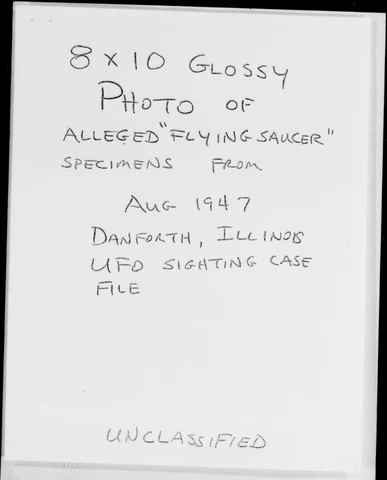 8 x 10 GLOSSY
PHOTO OF
ALLEGED "FLYING SAUCER"
SPECIMENS FROM
AUG 1947
DANFORTH, ILLINOIS
UFO SIGHTING CASE
FILE
UNCLASSIFIED